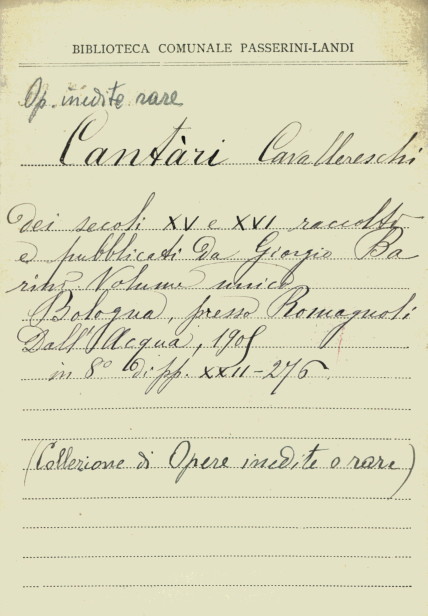 BIBLIOTECA COMUNALE PASSERINI-LANDI
Op. inedite rare
Cantàri Cavallereschi
dei secoli XV e XVI raccolti
e pubblicati da Giorgio Ba
rini Volume unico
Bologna, presso Romagnoli
Dall'Acqua, 1905
in 8° di pp. XXII-276
(Collezione di Opere inedite o rare)